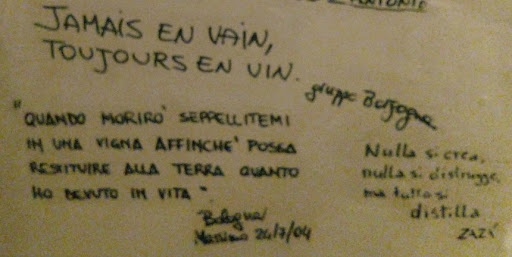 JAMAIS EN VAIN,
TOUJOURS EN VIN.
gruppo Borgogna
"QUANDO MORIRO' SEPPELLITEMI
IN UNA VIGNA AFFINCHE' POSSA
RESTITUIRE ALLA TERRA QUANTO
HO BEVUTO IN VITA"
Bologna
Massimo 24/7/04
Nulla si crea,
nulla si distrugge,
ma tutto si
distilla.
ZAZÁ